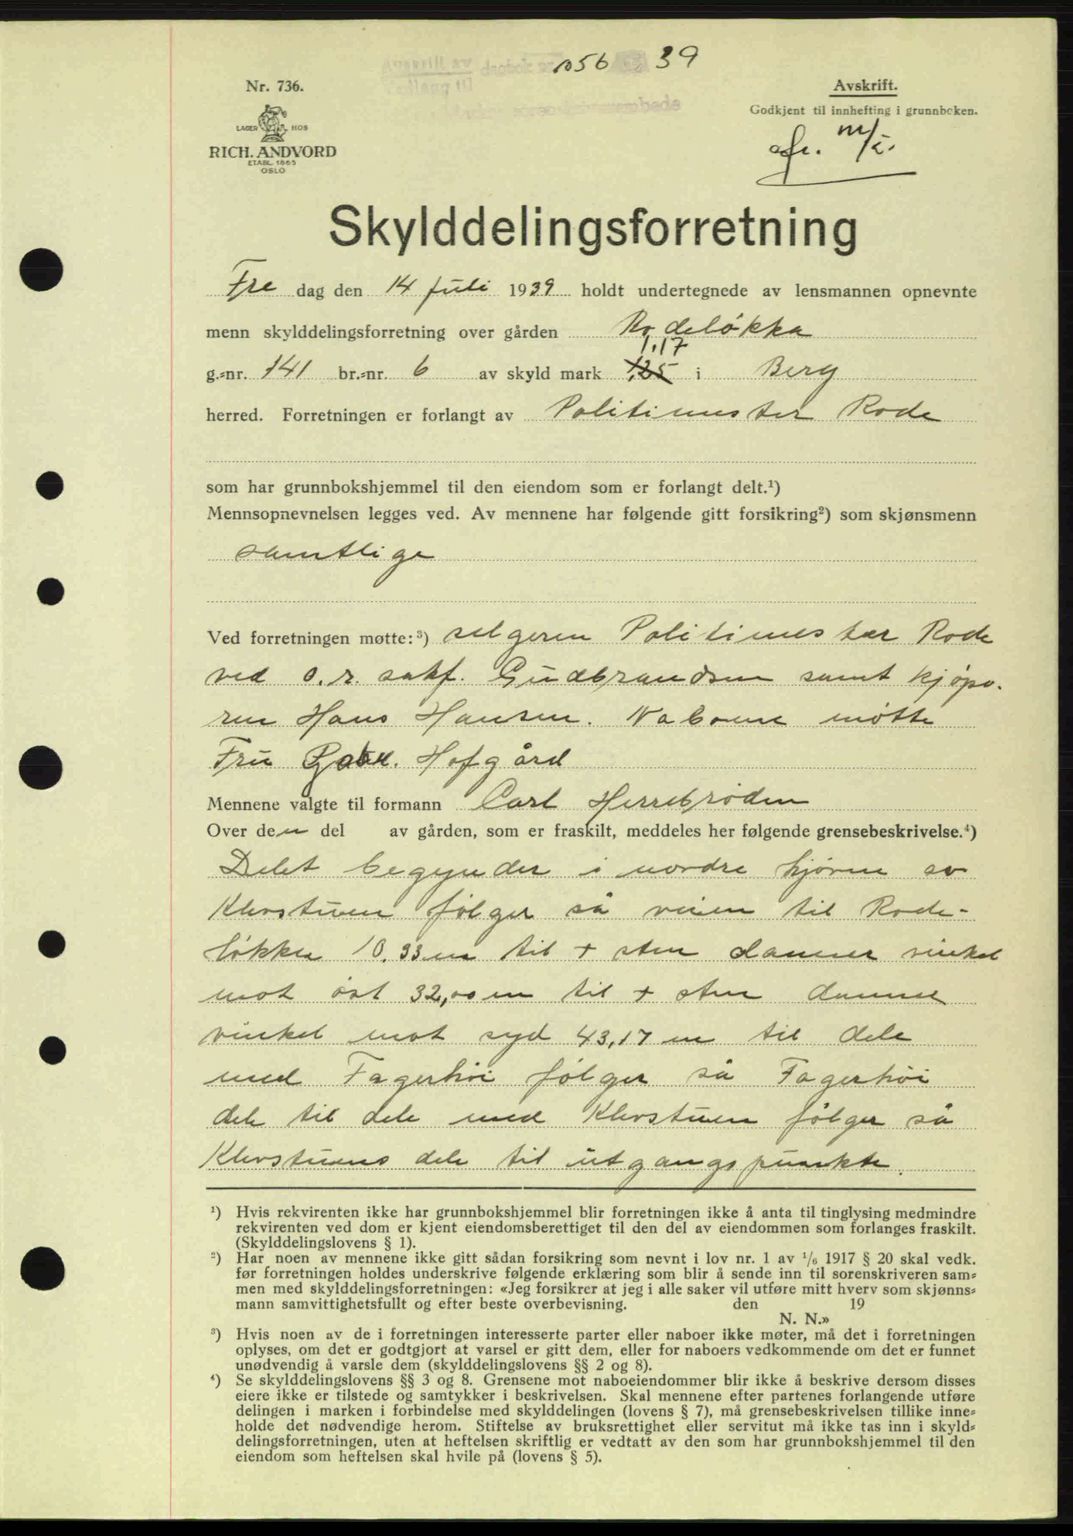 1056 39
Avskrift av
dagbok nr.
Nr. 736.
Avskrift.
Godkjent til innhefting i grunnboken.
LAGER HOS
RICH. ANDVORD
ETABL. 1865
OSLO
Skylddelingsforretning
Fre dag den 14 Juli 1939 holdt undertegnede av lensmannen opnevnte
menn skylddelingsforretning over gården Rodeløkka
1.17
g.-nr. 141 br.-nr. 6 av skyld mark 1,25 i Berg
herred. Forretningen er forlangt av Politimester Rode
som har grunnbokshjemmel til den eiendom som er forlangt delt.¹)
Mennsopnevnelsen legges ved. Av mennene har følgende gitt forsikring²) som skjønsmenn
samtlige
Ved forretningen møtte:³) selgeren Politimester Rode
ved o.r. sakf. Gudbrandsen samt kjøpe-
ren Hans Hansen. Naboene møtte
Fru Hofgård
Mennene valgte til formann Carl Herrebrøden
Over den del av gården, som er fraskilt, meddeles her følgende grensebeskrivelse.⁴)
Delet begynder i nordre hjørne av
Klevstuen følger så veien til Rode-
løkka 10.33 m til + sten danner vinkel
mot øst 32,00 m til + sten danner
vinkel mot syd 43,17 m til dele
med Fagerhøi følger så Fagerhøi
dele til dele med Klevstuen følger så
Klevstuens dele til utgangspunkte.
¹) Hvis rekvirenten ikke har grunnbokshjemmel blir forretningen ikke å anta til tinglysing medmindre
rekvirenten ved dom er kjent eiendomsberettiget til den del av eiendommen som forlanges fraskilt.
(Skylddelingslovens § 1).
²) Har noen av mennene ikke gitt sådan forsikring som nevnt i lov nr. 1 av 1/6 1917 § 20 skal vedk.
før forretningen holdes underskrive følgende erklæring som blir å sende inn til sorenskriveren sam-
men med skylddelingsforretningen: «Jeg forsikrer at jeg i alle saker vil utføre mitt hverv som skjønns-
mann samvittighetsfullt og efter beste overbevisning. den 19
N. N.»
³) Hvis noen av de i forretningen interesserte parter eller naboer ikke møter, må det i forretningen
oplyses, om det er godtgjort at varsel er gitt dem, eller for naboers vedkommende om det er funnet
unødvendig å varsle dem (skylddelingslovens §§ 2 og 8).
⁴) Se skylddelingslovens §§ 3 og 8. Grensene mot naboeiendommer blir ikke å beskrive dersom disses
eiere ikke er tilstede og samtykker i beskrivelsen. Skal mennene efter partenes forlangende utføre
delingen i marken i forbindelse med skylddelingen (lovens § 7), må grensebeskrivelsen tillike inne-
holde det nødvendige herom. Stiftelse av bruksrettighet eller servitut må ikke tas inn i skyld-
delingsforretningen, uten at heftelsen skriftlig er vedtatt av den som har grunnbokshjemmel til den
eiendom som heftelsen skal hvile på (lovens § 5).